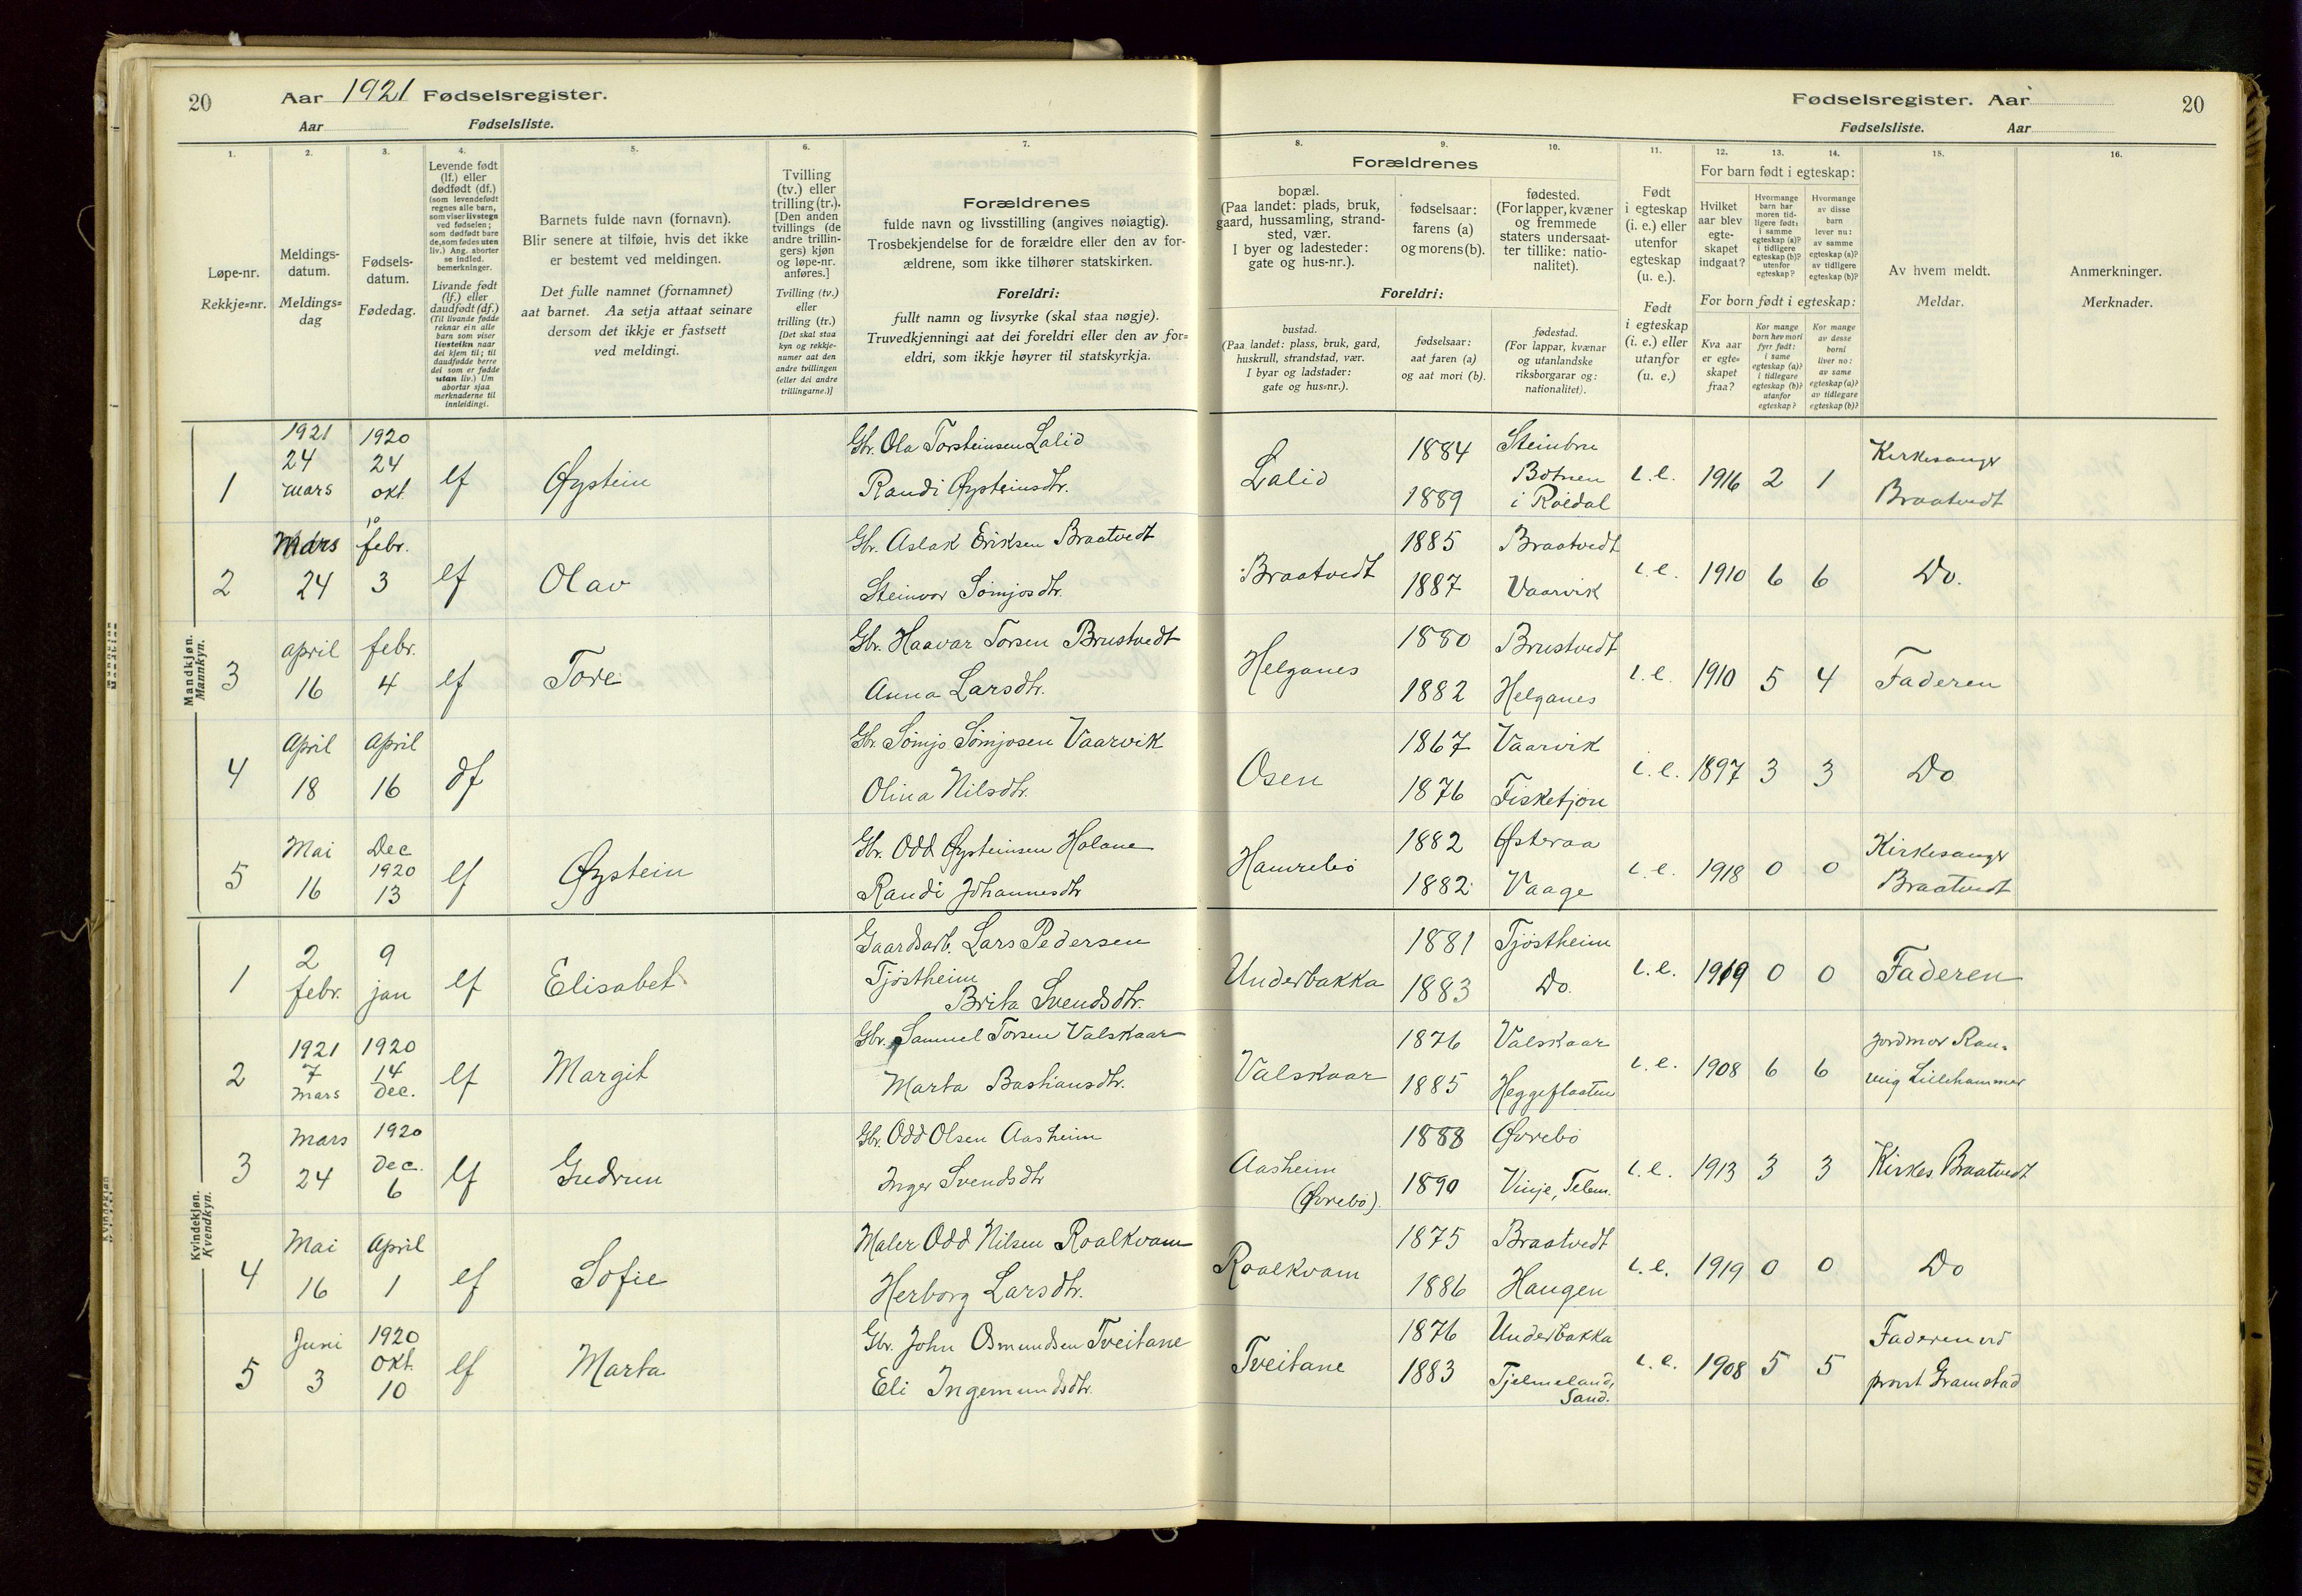 20
Aar 1921 Fødselsregister.
Aar Fødselsliste.
1. 2. 3. 4. 5. 6. 7.
Løpe-nr.
Rekkje=nr.
Meldings-
datum.
Meldings=
dag
Fødsels-
datum.
Fødedag.
Levende født
(lf.) eller
dødfødt (df.)
(som levendefødt
regnes alle barn,
som viser livstegn
ved fødselen;
som dødfødt bare
de, som fødes uten
liv.) Ang. aborter
se indled.
bemerkninger.
Livande født
(lf.) eller
daudfødt (df.)
(Til livande fødde
reknar ein alle
barn som viser
livsteikn naar
dei kjem til; til
daudfødde berre
dei som er fødde
utan liv.) Um
abortar sjaa
merknaderne til
innleidingi.
Barnets fulde navn (fornavn).
Blir senere at tilføie, hvis det ikke
er bestemt ved meldingen.
Det fulle namnet (fornamnet)
aat barnet. Aa setja attaat seinare
dersom det ikkje er fastsett
ved meldingi.
Tvilling
(tv.) eller
trilling (tr.).
[Den anden
tvillings (de
andre trillin-
gers) kjøn
og løpe-nr.
anføres.]
Tvilling (tv.)
eller
trilling (tr.)
[Det skal staa
kyn og rekkje-
numer aat den
andre tvillingen
(eller dei andre
trillingarne.)]
Forældrenes
fulde navn og livsstilling (angives nøiagtig).
Trosbekjendelse for de forældre eller den av for-
ældrene, som ikke tilhører statskirken.
Foreldri:
fullt namn og livsyrke (skal staa nøgje).
Truvedkjenningi aat dei foreldri eller den av for=
eldri, som ikkje høyrer til statskyrkja.
Mandkjøn.
Mannkyn.
1
1921
24
mars
1920
24
okt.
lf
Øystein
Gbr. Ola Torsteinsen Lalid
Randi Øysteinsdtr.
2
Mars
24
10
febr.
3
lf
Olav
Gbr. Aslak Eriksen Braatvedt
Steinvor Sømjosdtr.
3
april
16
febr.
4
lf
Tore
Gbr. Haavar Torsen Brustvedt
Anna Larsdtr.
4
April
18
April
16
df
Gbr. Sømjo Sømjosen Vaarvik
Olina Nilsdtr.
5
Mai
16
Dec
1920
13
lf
Øystein
Gbr. Odd Øysteinsen Halane
Randi Johannesdtr
Kvindekjøn.
Kvendkyn.
1
2
febr.
9
jan
lf
Elisabet
Gaardsarb. Lars Pedersen
Tjøstheim
Brita Svendsdtr.
2
1921
7
mars
1920
14
Dec.
lf
Margit
Gbr. Samuel Torsen Valskaar
Marta Bastiansdtr.
3
Mars
24
1920
Dec.
6
lf
Gudrun
Gbr. Odd Olsen Aasheim
Inger Svendsdtr
4
Mai
16
April
1
lf
Sofie
Maler Odd Nilsen Roalkvam
Herborg Larsdtr.
5
Juni
3
1920
okt.
10
lf
Marta
Gbr. John Osmundsen Tveitane
Eli Ingemundsdtr.
Fødselsregister. Aar
20
Fødselsliste. Aar
8. 9. 10. 11. 12. 13. 14. 15. 16.
Forældrenes
bopæl.
(Paa landet: plads, bruk,
gaard, hussamling, strand-
sted, vær.
I byer og ladesteder:
gate og hus-nr.).
fødselsaar:
farens (a)
og morens (b).
fødested.
(For lapper, kvæner
og fremmede
staters undersaat-
ter tillike: natio-
nalitet).
Foreldri:
bustad.
(Paa landet: plass, bruk, gard,
huskrull, strandstad, vær.
I byar og ladstader:
gate og hus=nr.).
fødselsaar:
aat faren (a)
og aat mori (b).
fødestad.
(For lappar, kvænar
og utanlandske
riksborgarar og:
nationalitet).
Født
i egteskap
(i. e.) eller
utenfor
egteskap
(u. e.).
Født
i egteskap
(i. e.) eller
utanfor
(u. e.)
For barn født i egteskap:
Hvilket
aar blev
egte-
skapet
indgaat?
Hvormange
barn har
moren tid-
ligere født:
i samme
egteskap (a)?
i tidligere
egteskap (b)?
utenfor
egteskap?
Hvormange
av disse
barn
lever nu:
av samme
egteskap (a)?
av tidligere
egteskap (b)?
For born født i egteskap:
Kva aar
er egte=
skapet
fraa?
Kor mange
born hev mori
fyrr født:
i same
egteskap (a)?
i tidlegare
egteskap (b)?
utanfor
egteskap?
Kor mange
av desse
borni
liver no:
av same
egteskap (a)?
av tidlegare
egteskap (b)?
Av hvem meldt.
Meldar.
Anmerkninger.
Merknader.
Lalid
1884
1889
Steinbru
Botnen
i Røldal
i.e.
1916
2
1
Kirkesanger
Braatvedt
Braatvedt
1885
1887
Braatvedt
Vaarvik
i.e.
1910
6
6
Do.
Helganes
1880
1882
Brustvedt
Helganes
i.e.
1910
5
4
Faderen
Osen
1867
1876
Vaarvik
Fisketjøn
i.e.
1897
3
3
Do
Hamrebø
1882
1882
Østeraa
Vaage
i.e.
1918
0
0
Kirkesanger
Braatvedt
Underbakka
1881
1883
Tjøstheim
Do.
i.e.
1919
0
0
Faderen
Valskaar
1876
1885
Valskaar
Heggeflaaten
i.e.
1908
6
6
Jordmor Ran-
veig Lillehammer
Aasheim
(Øvrebø)
1888
1890
Øvrebø
Vinje, Telem.
i.e.
1913
3
3
Kirkes. Braatvedt
Roalkvam
1875
1886
Braatvedt
Haugen
i.e.
1919
0
0
Do
Tveitane
1876
1883
Underbakka
Tjelmeland,
Sand.
i.e.
1908
5
5
Faderen ved
prost Gramstad